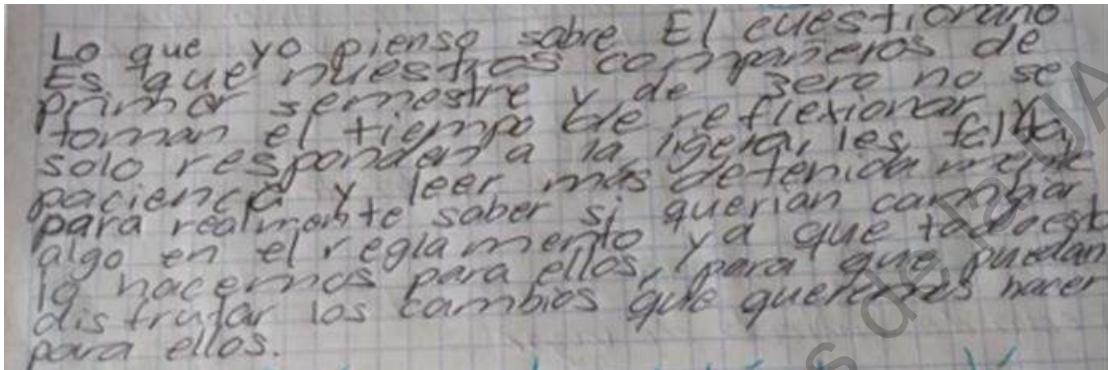 Lo que yo pienso sobre El cuestionario
Es que nuestros compañeros de
primer semestre y de 3ero no se
toman el tiempo de reflexionar y
solo responden a la ligera, les falta
paciencia y leer mas detenidamente
para realmente saber si querian cambiar
algo en el reglamento, ya que todo esto
lo hacemos para ellos, para que puedan
disfrutar los cambios que queremos hacer
para ellos.
de la UA
s